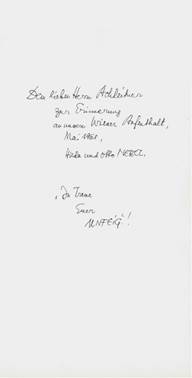 Dem lieben Herrn Achleitner
zur Erinnerung
an unseren Wiener Aufenthalt,
Mai 1961,
und Otto
"In Treue
Euer
!!